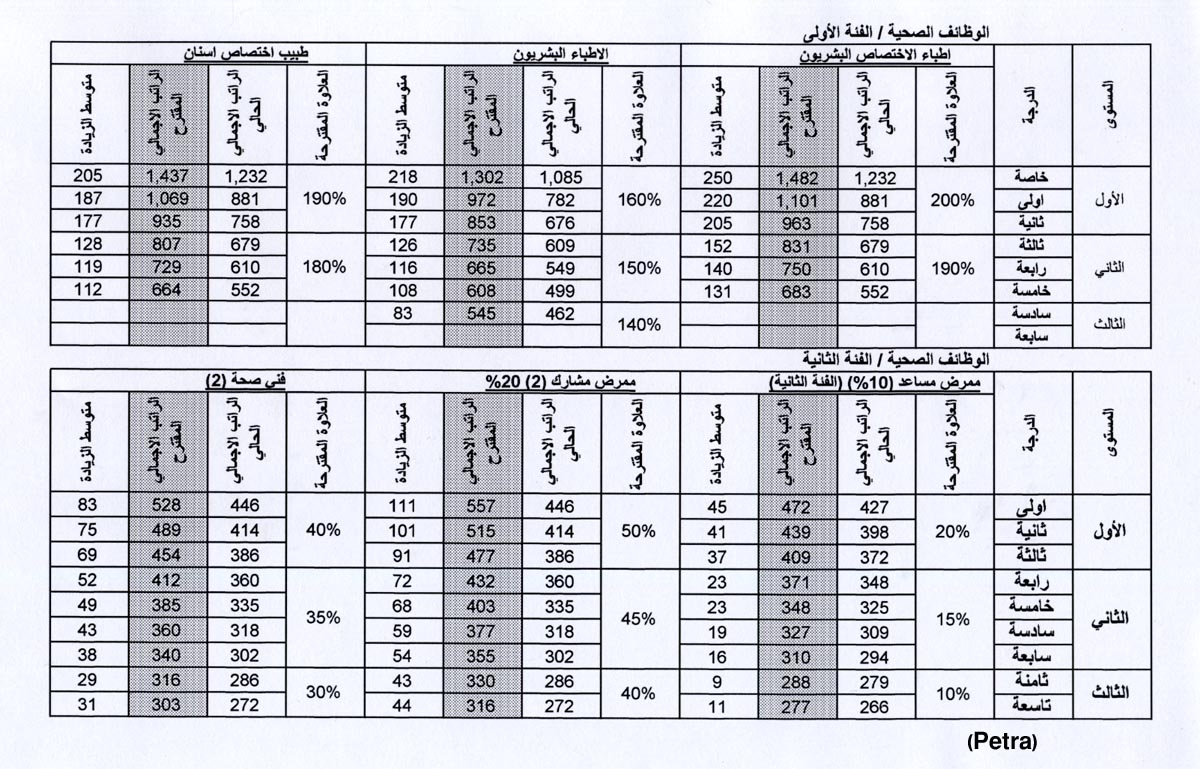 الوظائف الصحية / الفئة الأولى
المستوى الدرجة اطباء الاختصاص البشريون الاطباء البشريون طبيب اختصاص اسنان
العلاوة المقترحة الراتب الاجمالي الحالي الراتب الاجمالي المقترح متوسط الزيادة العلاوة المقترحة الراتب الاجمالي الحالي الراتب الاجمالي المقترح متوسط الزيادة العلاوة المقترحة الراتب الاجمالي الحالي الراتب الاجمالي المقترح متوسط الزيادة
الأول خاصة 200% 1,232 1,482 250 160% 1,085 1,302 218 190% 1,232 1,437 205
اولى 881 1,101 220 782 972 190 881 1,069 187
ثانية 758 963 205 676 853 177 758 935 177
الثاني ثالثة 190% 679 831 152 150% 609 735 126 180% 679 807 128
رابعة 610 750 140 549 665 116 610 729 119
خامسة 552 683 131 499 608 108 552 664 112
الثالث سادسة 140% 462 545 83
سابعة
الوظائف الصحية / الفئة الثانية
المستوى الدرجة ممرض مساعد (10%) (الفئة الثانية) ممرض مشارك (2) 20% فني صحة (2)
العلاوة المقترحة الراتب الاجمالي الحالي الراتب الاجمالي المقترح متوسط الزيادة العلاوة المقترحة الراتب الاجمالي الحالي الراتب الاجمالي المقترح متوسط الزيادة العلاوة المقترحة الراتب الاجمالي الحالي الراتب الاجمالي المقترح متوسط الزيادة
الأول اولى 20% 427 472 45 50% 446 557 111 40% 446 528 83
ثانية 398 439 41 414 515 101 414 489 75
ثالثة 372 409 37 386 477 91 386 454 69
الثاني رابعة 15% 348 371 23 45% 360 432 72 35% 360 412 52
خامسة 325 348 23 335 403 68 335 385 49
سادسة 309 327 19 318 377 59 318 360 43
سابعة 294 310 16 302 355 54 302 340 38
الثالث ثامنة 10% 279 288 9 40% 286 330 43 30% 286 316 29
تاسعة 266 277 11 272 316 44 272 303 31
(Petra)